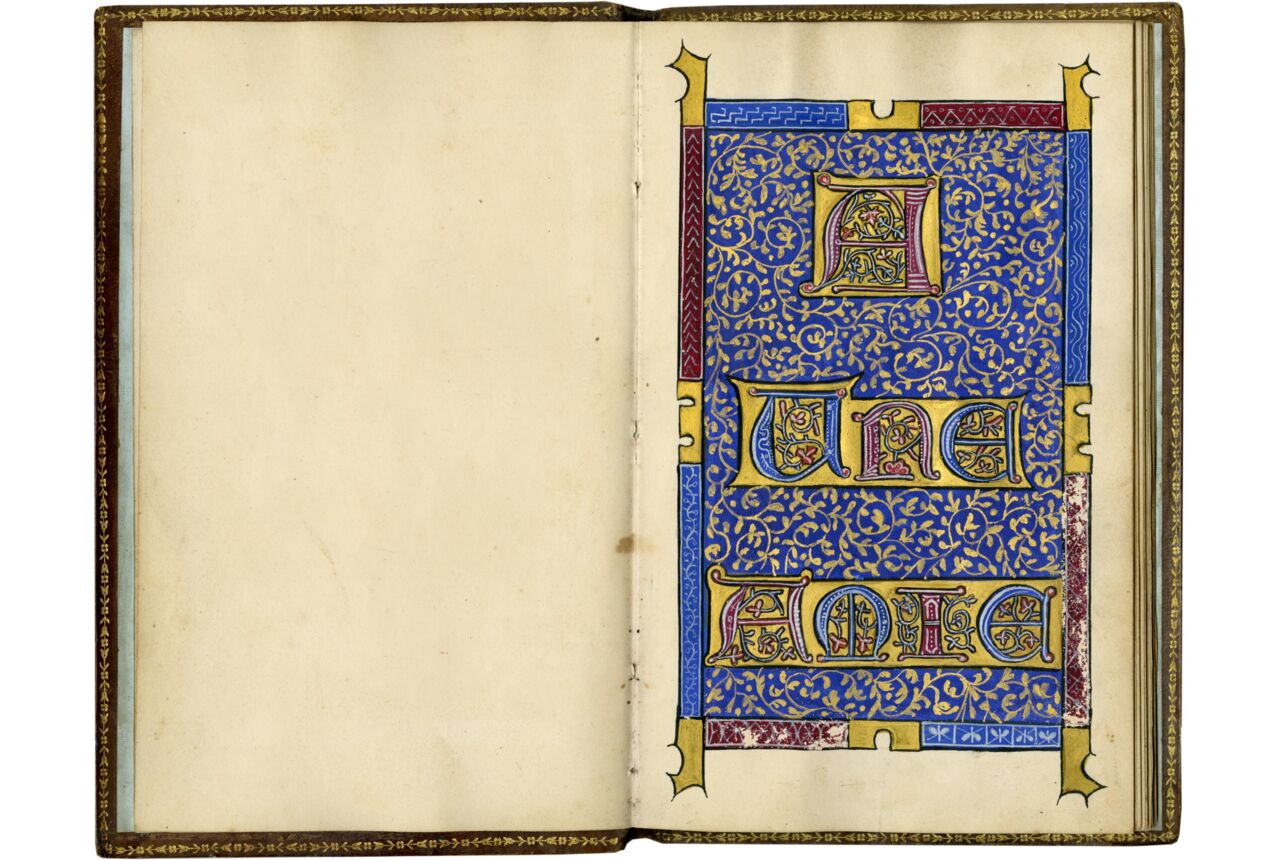 A
UNE
AMIE